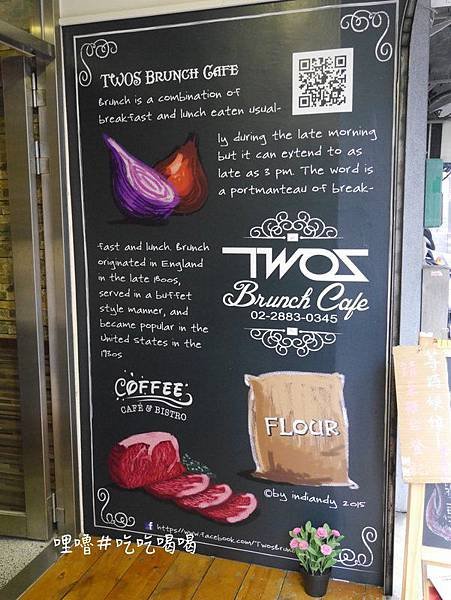 TWOS BRUNCH CAFE
Brunch is a combination of
breakfast and lunch eaten usual-
ly during the late morning
but it can extend to as
late as 3 pm. The word is
a portmanteau of break-
fast and lunch. Brunch
originated in England
in the late 1800s,
served in a buffet
style manner, and
became popular in the
united states in the
1930s
TWOS
Brunch Cafe
02-2883-0345
COFFEE
CAFÈ & BISTRO
FLOUR
©by indiandy 2015
f https://www.facebook.com/TwosBrun
哩嚕#吃吃喝喝